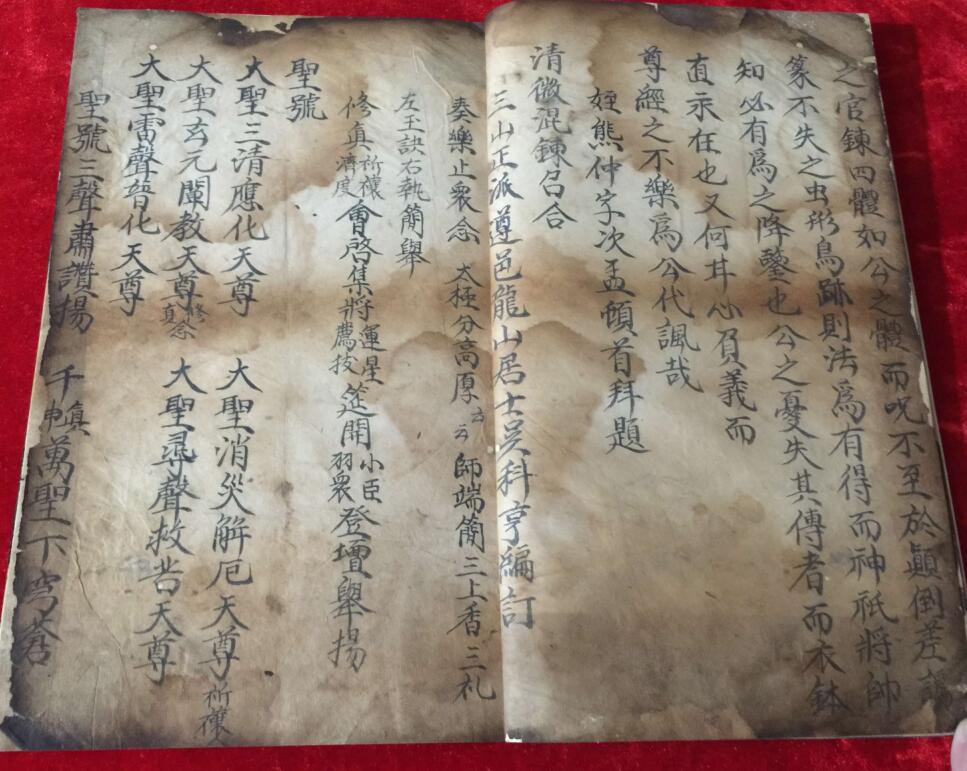 之官鍊四體如公之體而呪不至於顛倒差訛
篆不失之虫形鳥跡則法爲有得而神祇將帥
知必有爲之降鑒也公之憂失其傳者而衣鉢
直示在也又何其心負義而
尊經之不樂爲公代諷哉
姪熊仲字次孟頓首拜題
清微混鍊召合
三山正派遵邑龍山居士吳科亨編訂
奏樂止衆念 太極分高厚云云 師端簡三上香三礼
左玉訣右執簡舉
修真祈禳濟度會啓集將運星薦拔筵開小臣羽衆登壇舉揚
聖號
大聖三清應化天尊 大聖消災解厄天尊祈禳
大聖玄元闡教天尊修真念 大聖尋聲救苦天尊
大聖雷聲普化天尊
聖號三聲肅讚揚 千真萬聖下穹蒼